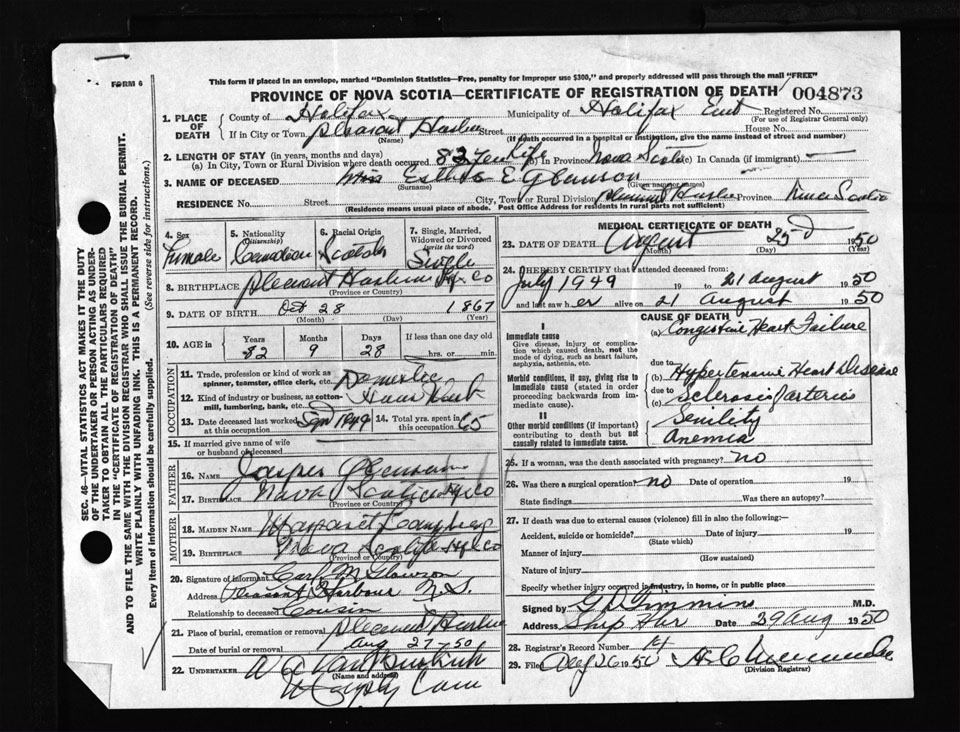 This form if placed in an envelope, marked "Dominion Statistics—Free, penalty for improper use $300," and properly addressed will pass through the mail "FREE"
FORM 6
PROVINCE OF NOVA SCOTIA—CERTIFICATE OF REGISTRATION OF DEATH 004873
SEC. 46—VITAL STATISTICS ACT MAKES IT THE DUTY
OF THE UNDERTAKER OR PERSON ACTING AS UNDER-
TAKER TO OBTAIN ALL THE PARTICULARS REQUIRED
IN THE "CERTIFICATE OF REGISTRATION OF DEATH"
AND TO FILE THE SAME WITH THE DIVISION REGISTRAR WHO SHALL ISSUE THE BURIAL PERMIT.
WRITE PLAINLY WITH UNFADING INK. THIS IS A PERMANENT RECORD.
Every item of information should be carefully supplied. (See reverse side for instructions.)
1. PLACE OF DEATH County of Halifax Municipality of Halifax East Registered No.
(For use of Registrar General only)
If in City or Town Pleasant Harbor Street House No.
(Name) (If death occurred in a hospital or institution, give the name instead of street and number)
2. LENGTH OF STAY (in years, months and days)
(a) In City, Town or Rural Division where death occurred 82 (b) In Province Nova Scotia (c) In Canada (if immigrant) —
3. NAME OF DECEASED Miss E
(Surname) (Given name or names)
RESIDENCE No. Street City, Town or Rural Division Pleasant Harbor Province Nova Scotia
(Residence means usual place of abode. Post Office Address for residents in rural parts not sufficient)
4. Sex Female
5. Nationality (Citizenship) Canadian
6. Racial Origin Scotish
7. Single, Married, Widowed or Divorced (write the word) Single
8. BIRTHPLACE Pleasant Harbour Hfx Co
(Province or Country)
9. DATE OF BIRTH Oct 28 1867
(Month) (Day) (Year)
10. AGE in Years Months Days If less than one day old
82 9 28 hrs. or min.
OCCUPATION
11. Trade, profession or kind of work as spinner, teamster, office clerk, etc. Domestic
12. Kind of industry or business, as cotton-mill, lumbering, bank, etc.
13. Date deceased last worked at this occupation 1949 14. Total yrs. spent in this occupation 65
15. If married give name of wife or husband of deceased
FATHER
16. NAME Jasper
17. BIRTHPLACE Nova Scotia Hfx Co
MOTHER
18. MAIDEN NAME Margaret
19. BIRTHPLACE Nova Scotia Hfx Co
(Province or Country)
20. Signature of informant Carl M
Address Pleasant Harbour N.S.
Relationship to deceased Cousin
21. Place of burial, cremation or removal Pleasant Harbor
Date of burial or removal Aug 27—50
22. UNDERTAKER
(Name and address)
MEDICAL CERTIFICATE OF DEATH
23. DATE OF DEATH August 25 1950
(Month) (Day) (Year)
24. I HEREBY CERTIFY that I attended deceased from
July 1949 19 to 21 August 1950
and last saw her alive on 21 August 1950
CAUSE OF DEATH
I
Immediate cause
Give disease, injury or complication which caused death, not the mode of dying, such as heart failure, asphyxia, asthenia, etc.
(a) Congestive Heart Failure
due to
Morbid conditions, if any, giving rise to immediate cause (stated in order proceeding backwards from immediate cause).
(b) Hypertensive Heart Disease
due to
(c) Sclerosis Arteries
II
Other morbid conditions (if important) contributing to death but not causally related to immediate cause.
Senility
Anemia
25. If a woman, was the death associated with pregnancy? no
26. Was there a surgical operation? no Date of operation 19
State findings Was there an autopsy?
27. If death was due to external causes (violence) fill in also the following:—
Accident, suicide or homicide? Date of injury 19
(State which)
Manner of injury
(How sustained)
Nature of injury
Specify whether injury occurred in industry, in home, or in public place
Signed by M.D.
Address Ship Hbr Date 29 Aug 1950
28. Registrar's Record Number 14
29. Filed Aug 26 1950
(Division Registrar)